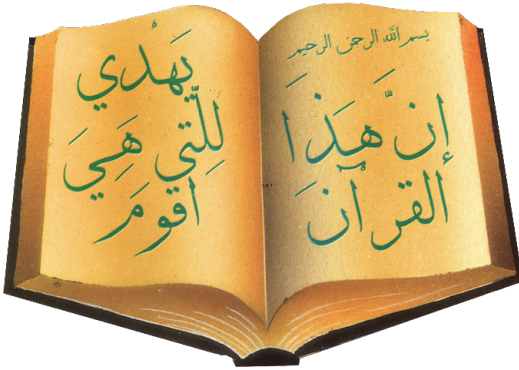 بسم الله الرحمن الرحيم
إنَّ هَذَا
القرآنَ
يَهْدي
لِلَّتي هِيَ
أقومَ